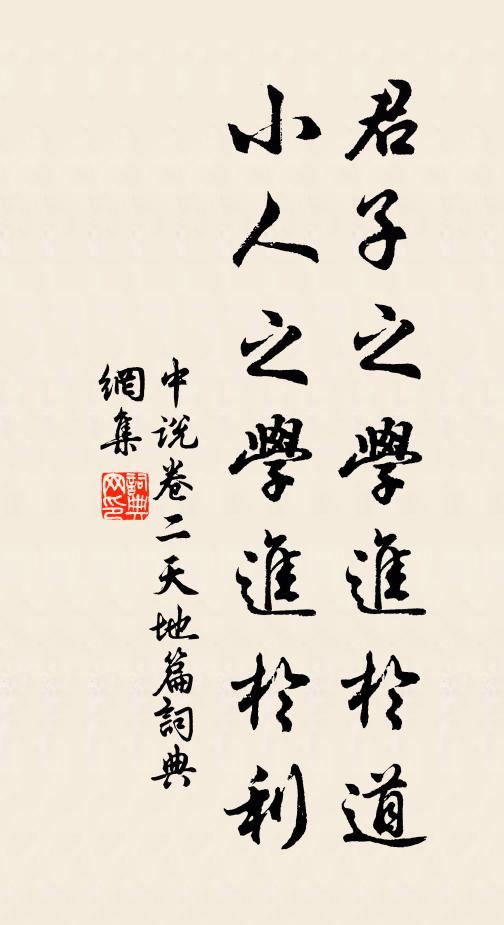 君子之學進於道
小人之學進於利
中説卷二天地篇詞典
網集
詞典
网印